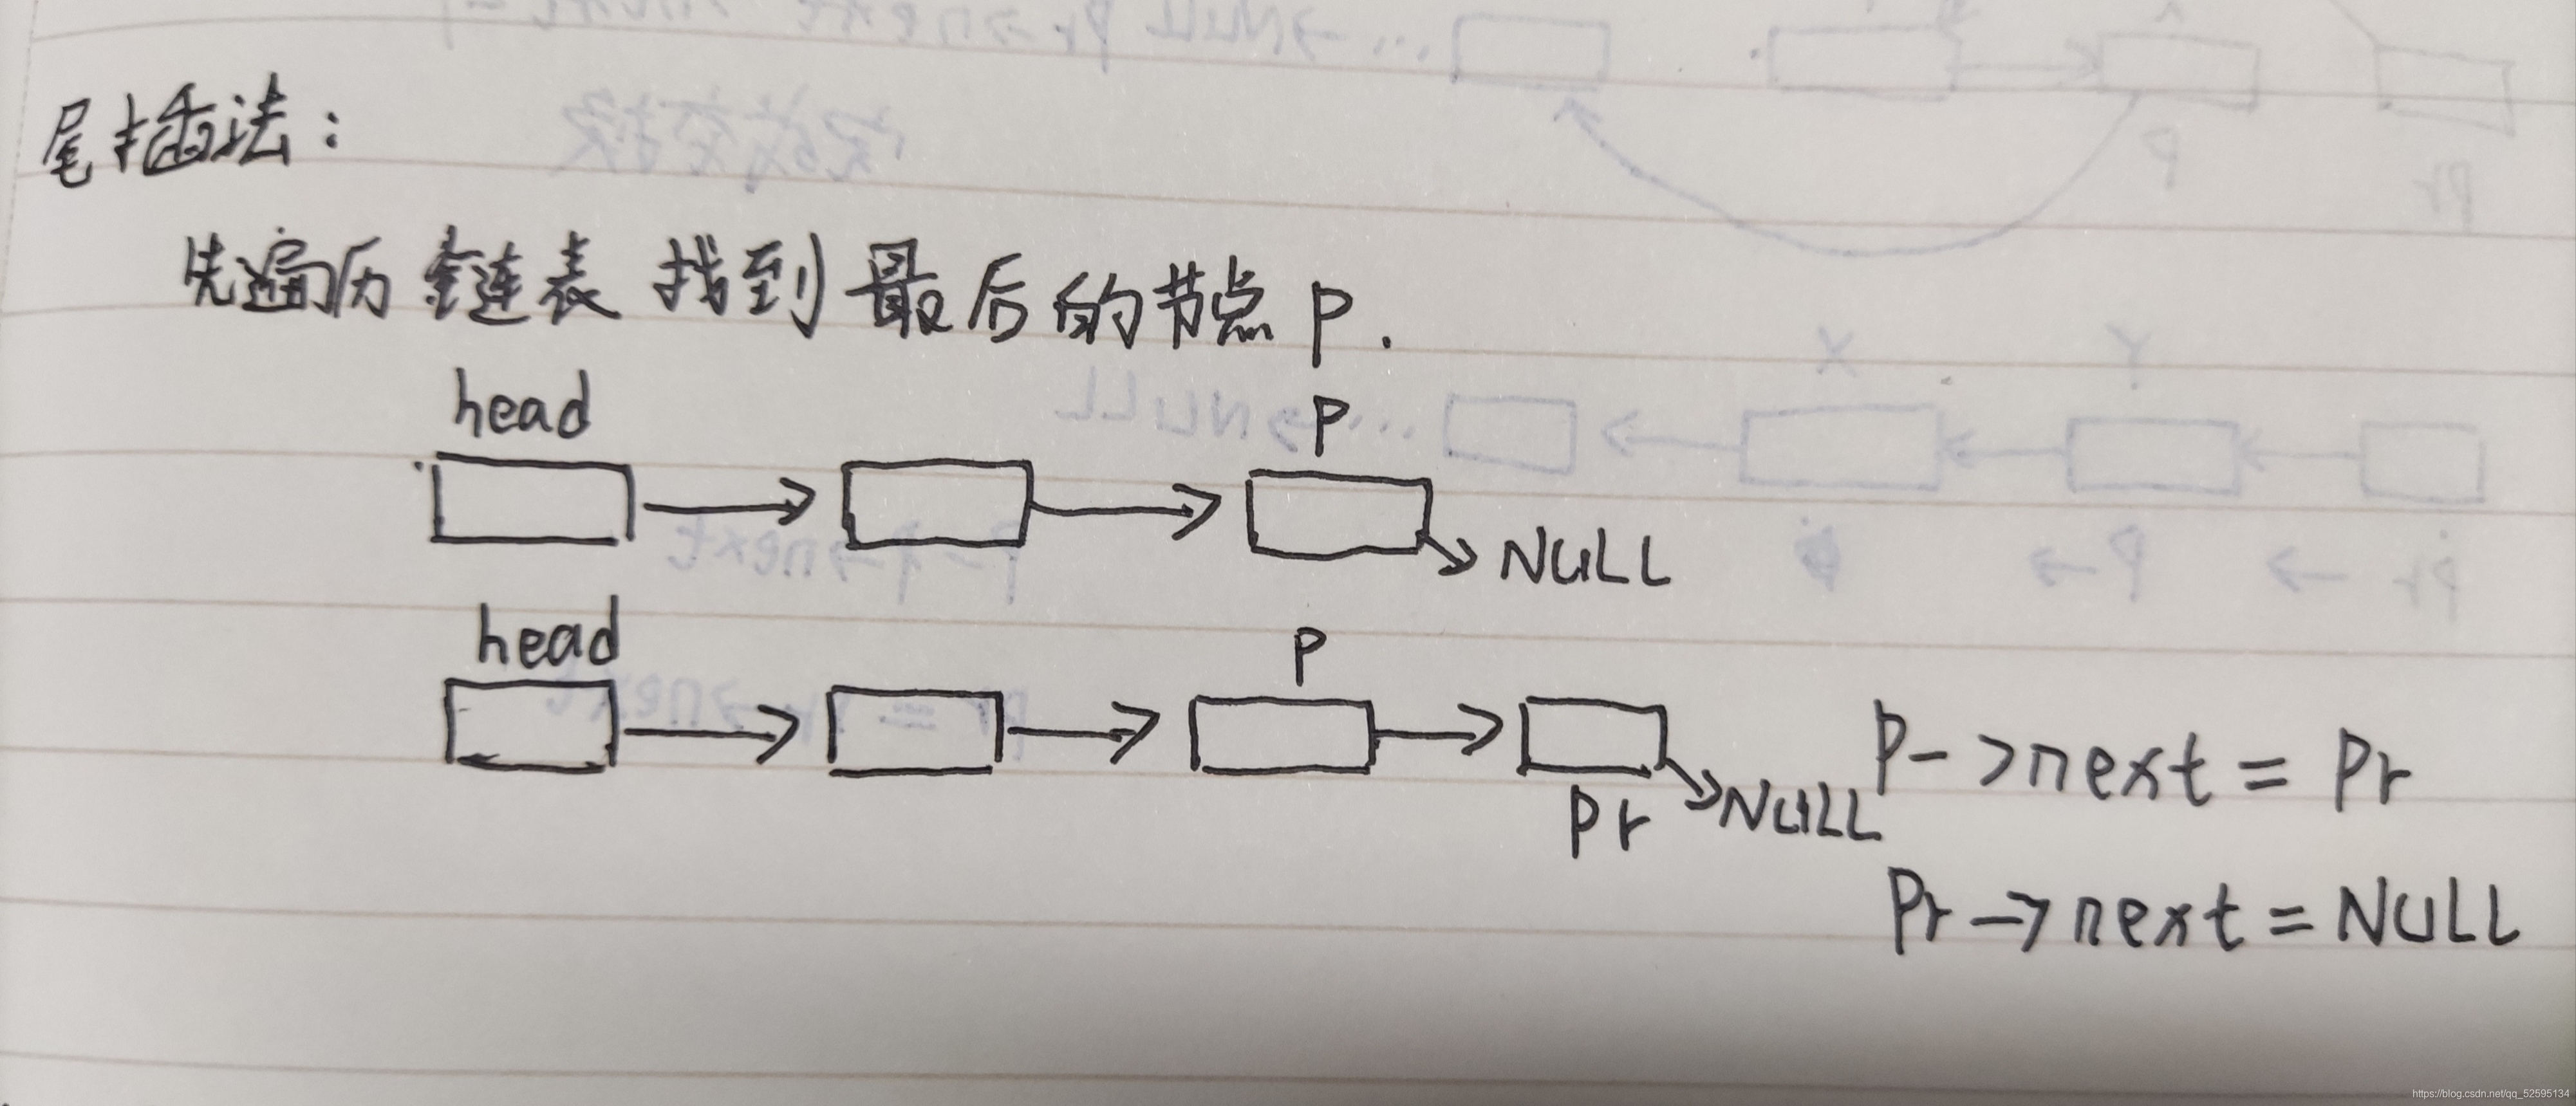 尾插法：
先遍历整链表 找到最后的节点 P.
head
P
NULL
head
P
Pr
NULL
P->next = Pr
Pr->next = NULL
https://blog.csdn.net/qq_52595134